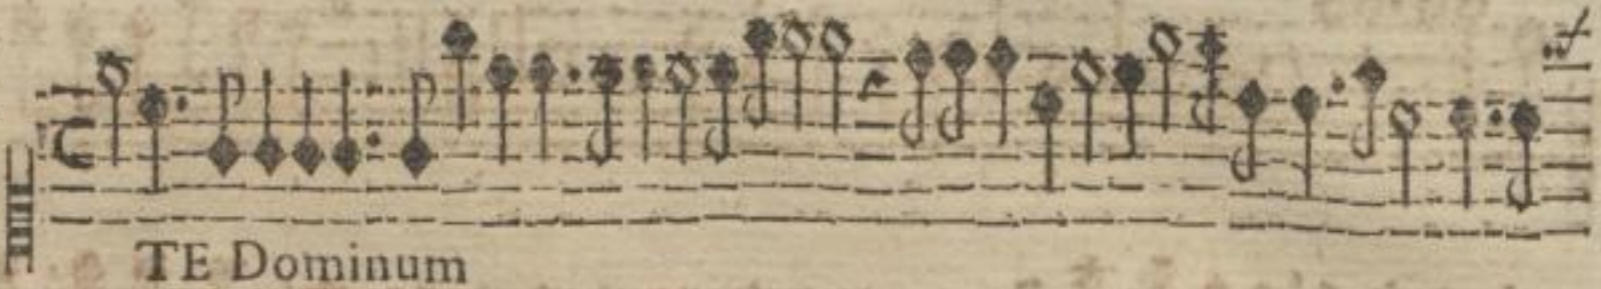 TE Dominum